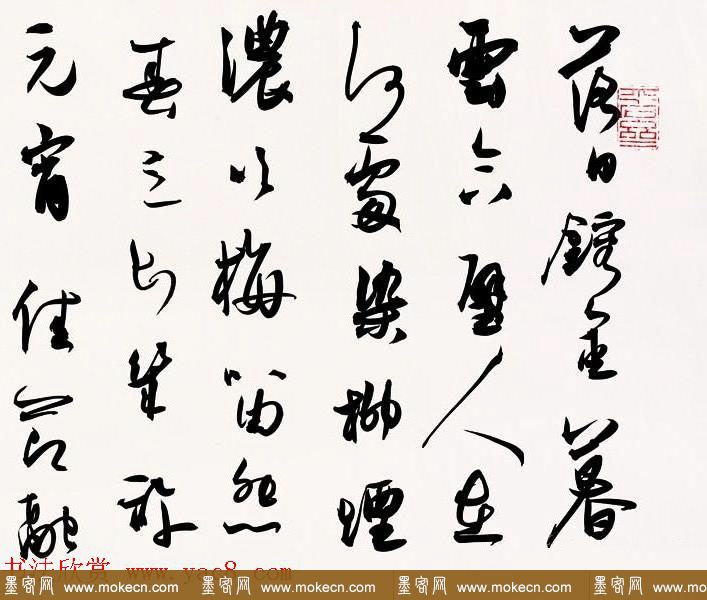 落日鎔金暮
雲合璧人在
何處染柳煙
濃吹梅笛怨
春意知幾許
元宵佳節融
书法欣赏 www.yac8.com
墨客网 www.mokecn.com 墨客网 www.mokecn.com 墨客网 www.mokecn.com 墨客网 www.mokecn.com